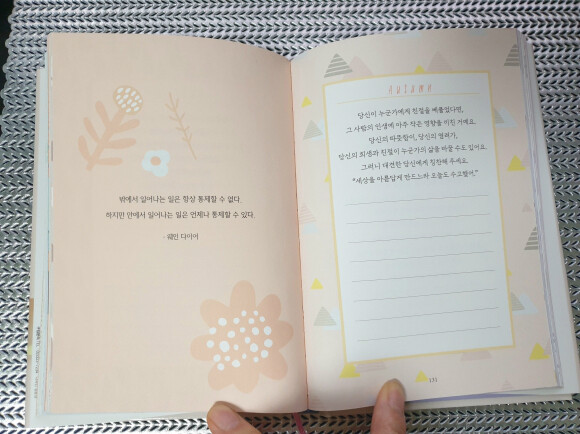 밖에서 일어나는 일은 항상 통제할 수 없다.
하지만 안에서 일어나는 일은 언제나 통제할 수 있다.
- 웨인 다이어
AUTUMN
당신이 누군가에게 친절을 베풀었다면,
그 사람의 인생에 아주 작은 영향을 끼친 거예요.
당신의 따뜻함이, 당신의 염려가,
당신의 희생과 친절이 누군가의 삶을 바꿀 수도 있어요.
그러니 대견한 당신에게 칭찬해 주세요.
"세상을 아름답게 만드느라 오늘도 수고했어."
131